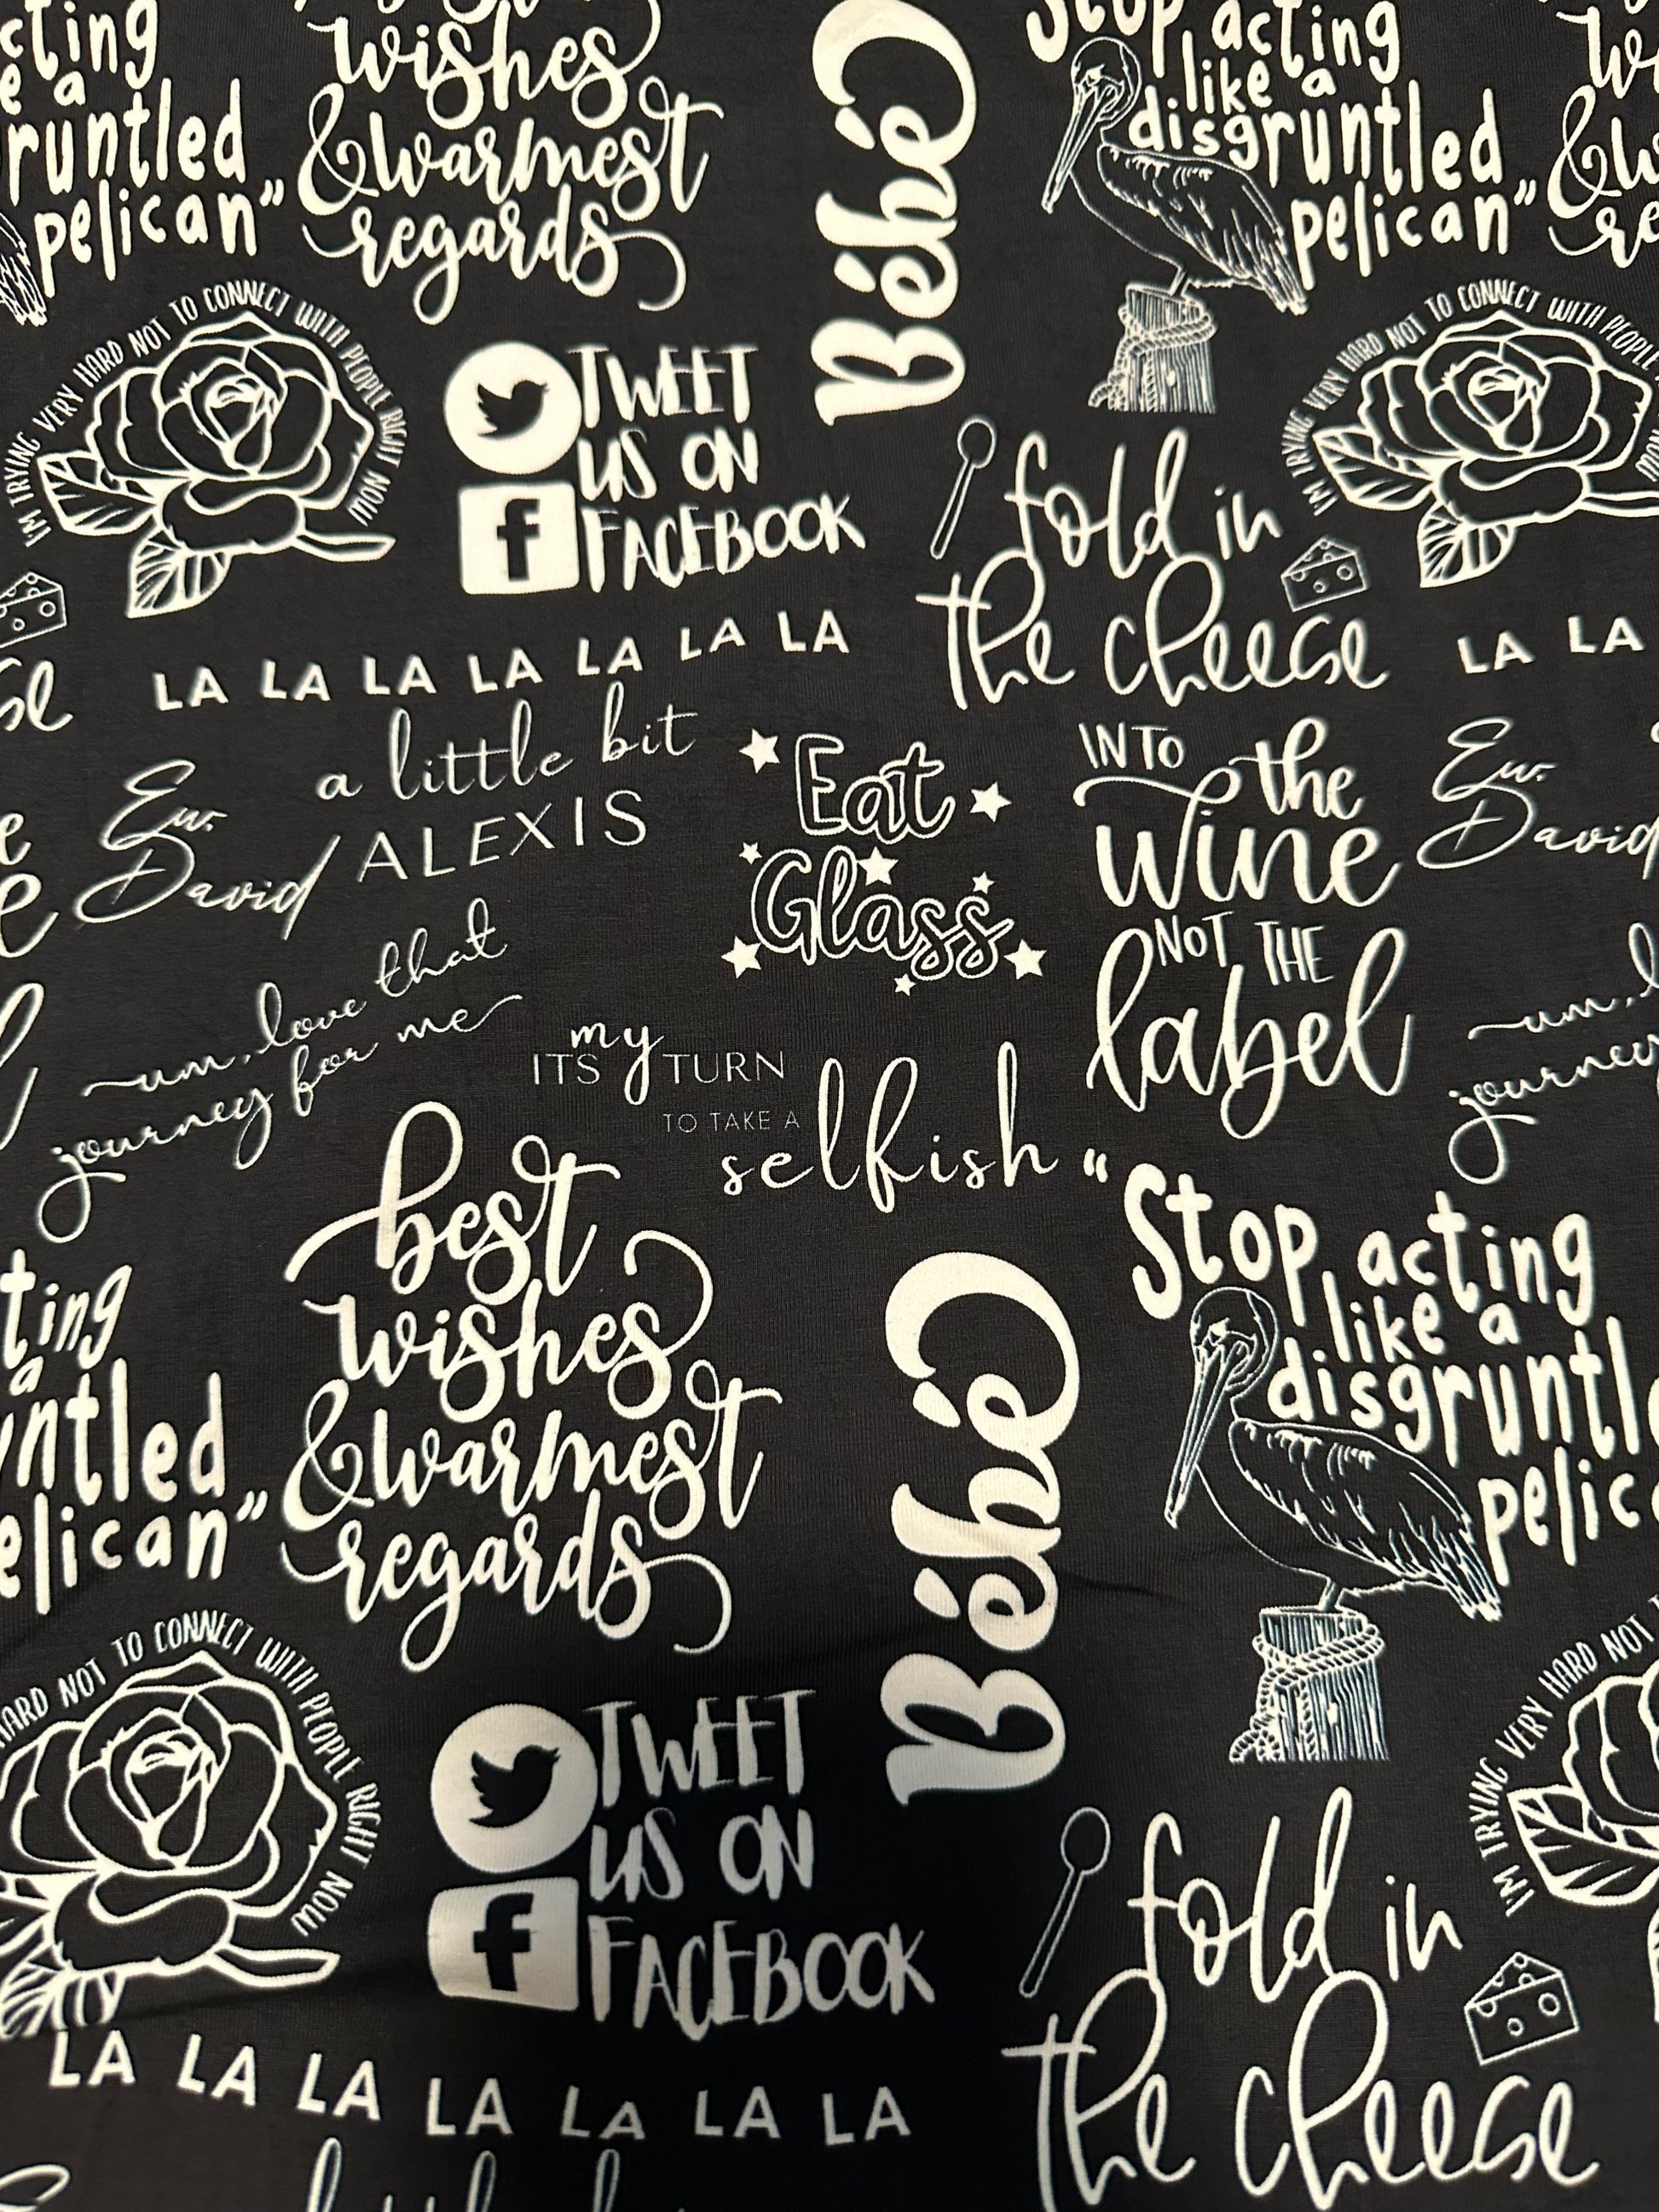 cting
e a
runtled
pelican”
wishes
& warmest
regards
Bébé
Stop acting
like a
disgruntled
pelican”
&
re
I'M TRYING VERY HARD NOT TO CONNECT WITH PEOPLE RIGHT NOW
TWEET
US ON
f FACEBOOK
fold in
the cheese
I'M TRYING VERY HARD NOT TO CONNECT WITH PEOPLE
NOW
se
LA LA LA LA LA LA LA
LA LA
Ew,
David
a little bit
ALEXIS
Eat
Glass
INTO the
wine
NOT THE
label
Ew,
David
um, love that
journey for me
ITS my TURN
TO TAKE A
selfish
um, l
journey
best
wishes
& warmest
regards
Bébé
“Stop acting
like a
disgruntle
pelic
ting
a
untled
elican”
HARD NOT TO CONNECT WITH PEOPLE RIGHT NOW
TWEET
US ON
f FACEBOOK
fold in
the cheese
I'M TRYING VERY HARD NOT T
LA LA LA LA LA LA LA